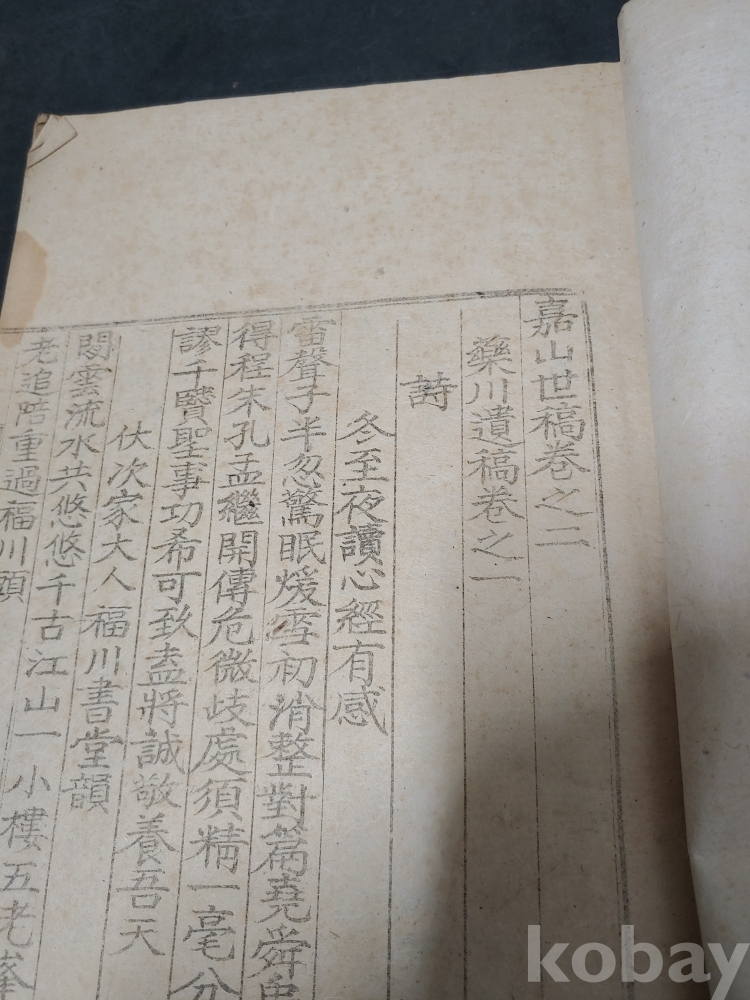 嘉山世稿卷之二
藥川遺稿卷之一
詩
冬至夜讀心經有感
雷聲子半忽驚眠煖雪初消整對篇堯舜
得程朱孔孟繼開傳危微歧處須精一毫分
謬千賢聖事功希可致盍將誠敬養吾天
伏次家大人福川書堂韻
閒雲流水共悠悠千古江山一小樓五老峯
老追陪重過福川頭
kobay